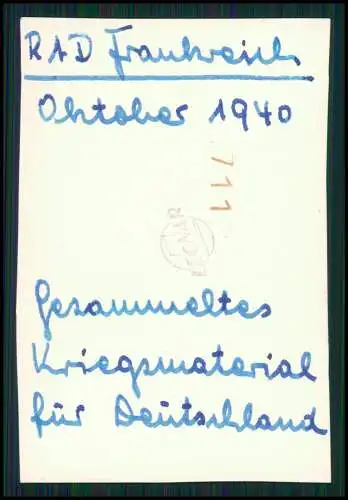 RAD Frankreich
Oktober 1940
711
Gesammeltes
Kriegsmaterial
für Deutschland